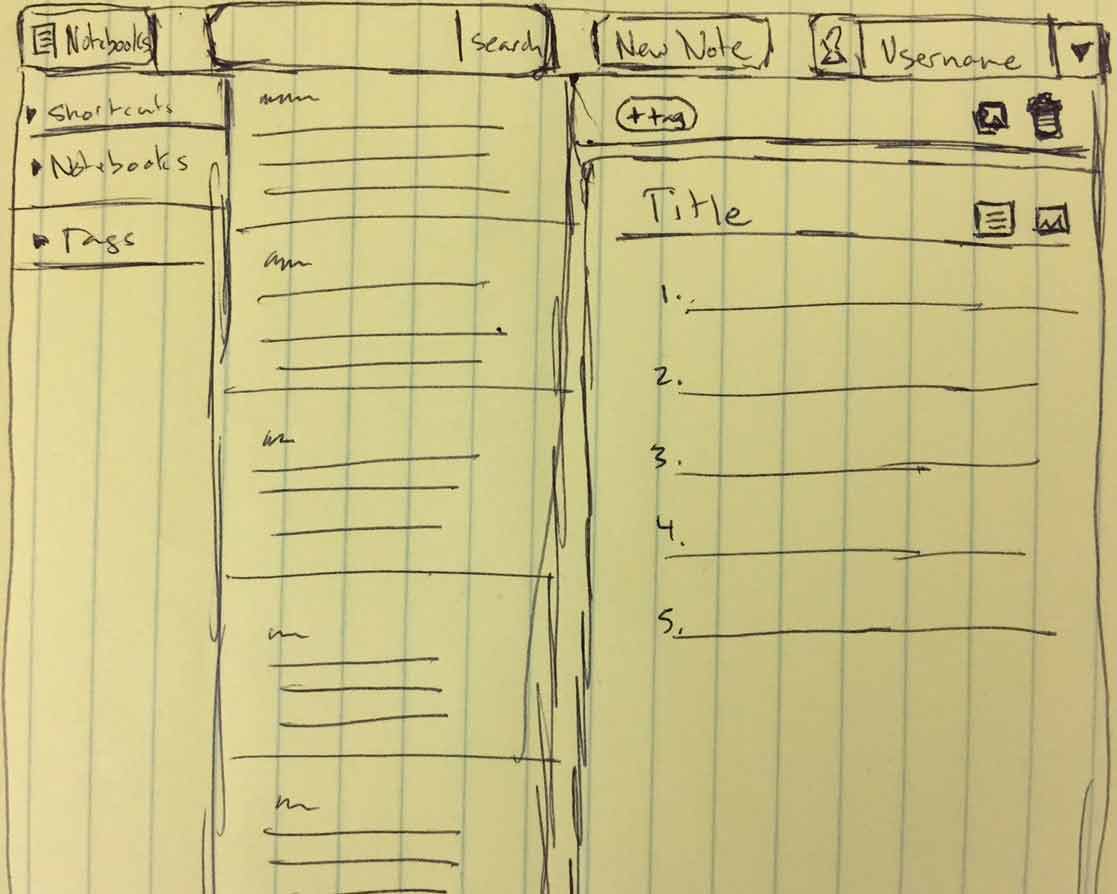 Notebooks
search
New Note
Username
Shortcuts
Notebooks
Tags
+ tag
Title
1.
2.
3.
4.
5.